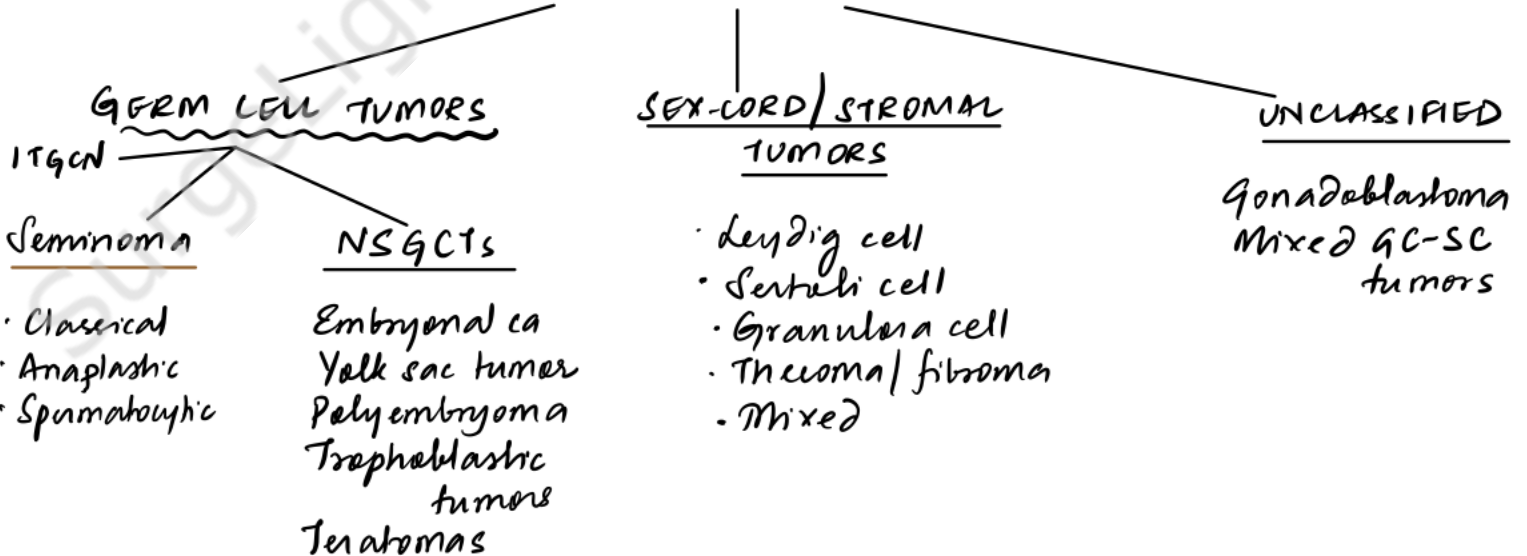 GERM CELL TUMORS
ITGCN
Seminoma
· Classical
· Anaplastic
· Spermatocytic
NSGCTs
Embryonal ca
Yolk sac tumor
Polyembryoma
Trophoblastic
tumors
Teratomas
SEX-CORD/STROMAL
TUMORS
· Leydig cell
· Sertoli cell
· Granulosa cell
· Thecoma/fibroma
· Mixed
UNCLASSIFIED
Gonadoblastoma
Mixed GC-SC
tumors